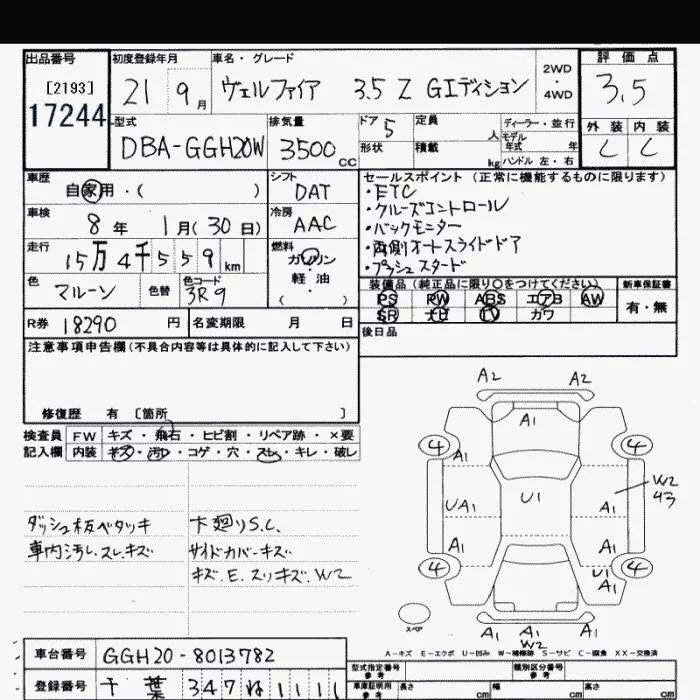 出品番号
[2193]
17244
初度登録年月
21 9月
車名・グレード
ヴェルファイア 3.5 Z Gエディション
2WD
・
4WD
評価点
3.5
外装 内装
C C
型式
DBA-GGH20W
排気量
3500 CC
ドア 5
形状
定員 人
積載 kg
ディーラー・並行
モデル
年式 年
ハンドル 左・右
車歴
自家用・( )
シフト
DAT
車検
8年 1月(30日)
冷房
AAC
走行
15万4千559km
燃料
ガソリン
・
軽油
( )
色
マルーン
色替
色コード
3R9
R券 18290 円
名変期限 月 日
セールスポイント (正常に機能するものに限ります)
・ETC
・クルーズコントロール
・バックモニター
・両側オートスライドドア
・プッシュスタート
装備品 (純正品に限り○をつけてください)
PS PW ABS エアB AW
SR ナビ TV カワ
新車保証書
有・無
後日品
注意事項申告欄(不具合内容等は具体的に記入して下さい)
修復歴 有 [箇所 ]
検査員
記入欄
FW キズ・飛石・ヒビ割・リペア跡・×要
内装 キズ・汚れ・コゲ・穴・スレ・キレ・破し
ダッシュ板ベタツキ
車内汚れ.スレ.キズ
下廻りS.C.
サイドカバーキズ
キズ.E.スリキズ.W2
A2 A2
A1
4 4
A1
W2
43
UA1 U1 A1
A1 A1
4 4
U1
A1
スペア
A1 A1 A1
W2
A-キズ E-エクボ U-凹み W-補修跡 S-サビ C-腐食 XX-交換済
車台番号 GGH20-8013782
登録番号 千葉 347 ね 1111
型式指定番号
参考
類別区分番号
参考
車庫証明用
参考
長さ cm
幅 cm
高さ cm